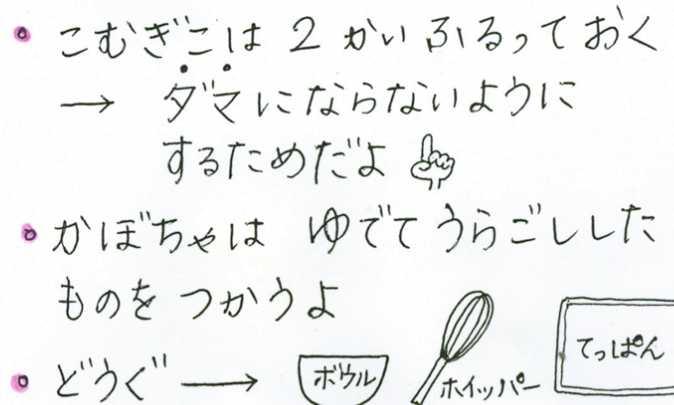 • こむぎこは 2 かい ふるっておく
→ ダマにならないように
するためだよ
• かぼちゃは ゆでて うらごしした
ものを つかうよ
• どうぐ → ボウル ホイッパー てっぱん